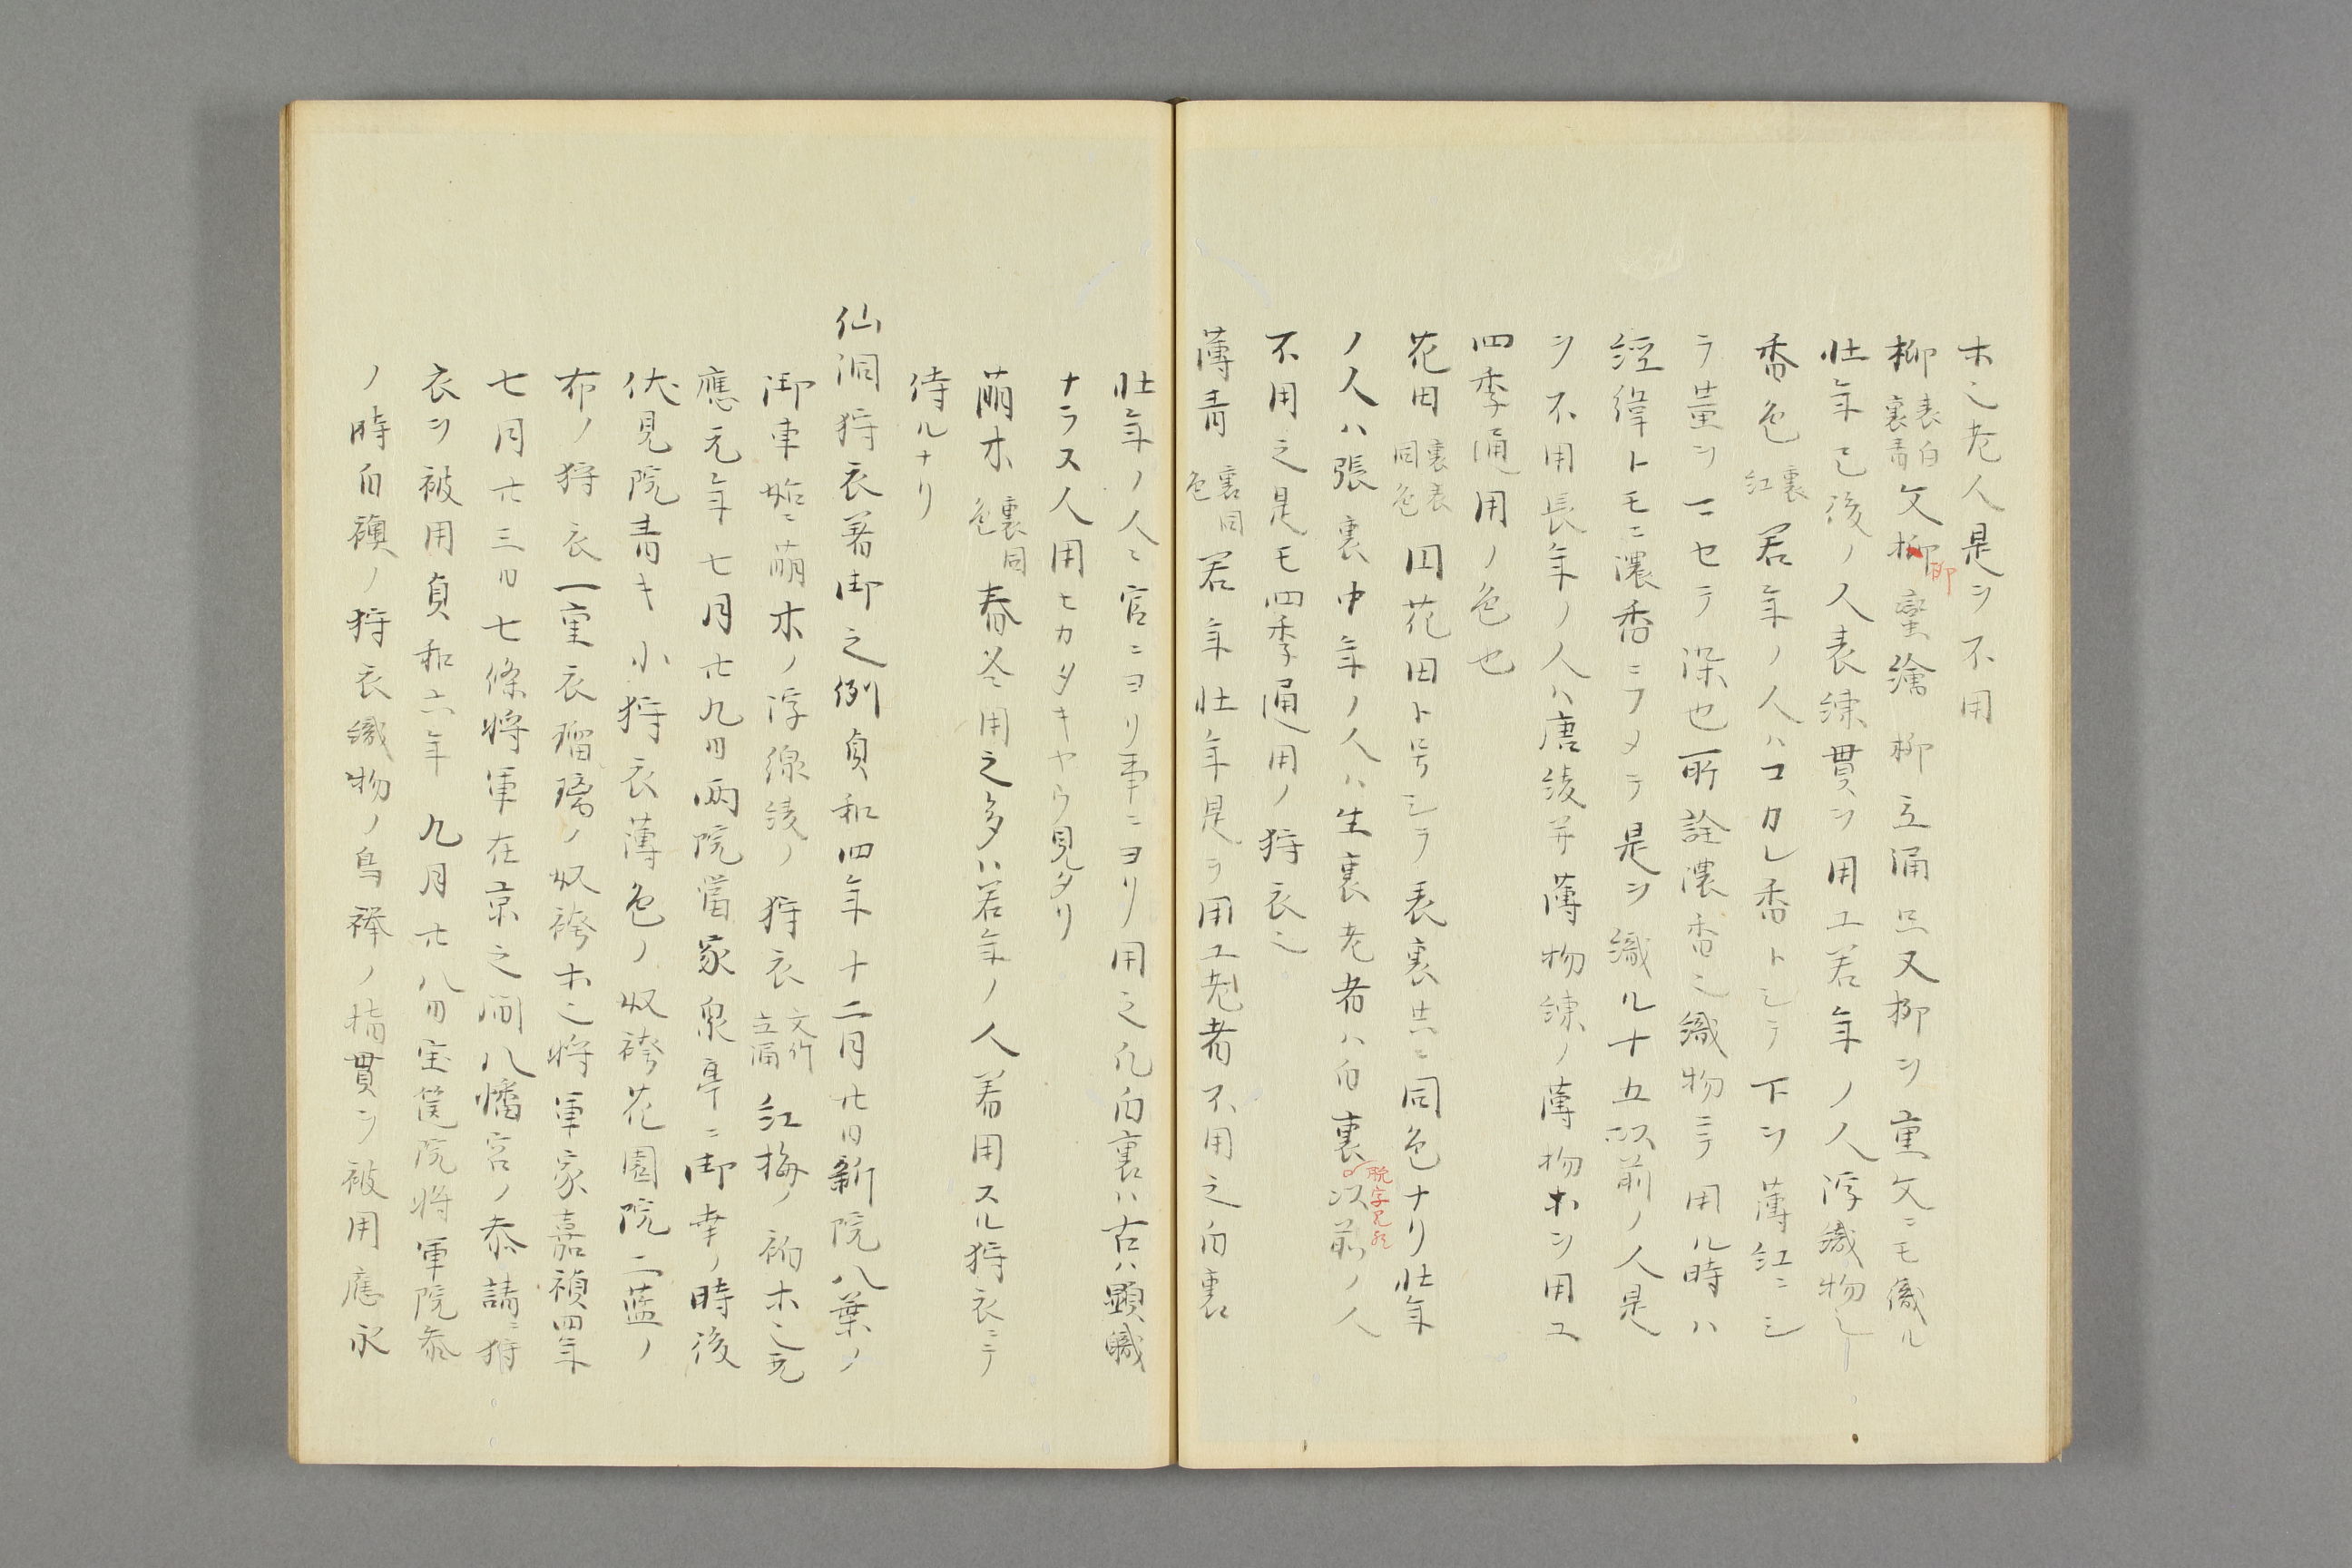 ホ之老人是ヲ不用
柳表白裏青文柳柳蠻繪柳立涌只又柳ヲ重文ニモ織ル
壮年已後ノ人表練貫ヲ用エ若年ノ人浮織物
香色裏紅若年ノ人ハコカレ香トシテ下ヲ薄紅ニシ
テ薫ヲニセテ染也所詮濃香之織物ニテ用ル時ハ
經緯トモニ濃香ニソメテ是ヲ織ル十五以前ノ人是
ヲ不用長年ノ人ハ唐綾并薄物練ノ薄物ホヲ用エ
四季通用ノ色也
花田裏表同色月花田ト号シテ表裏共ニ同色ナリ壮年
ノ人ハ張裏中年ノ人ハ生裏老者ハ白裏以前ノ人
脱字見歟
不用之是モ四季通用ノ狩衣之
薄青裏同色若年壮年是ヲ用エ老者不用之白裏
壮年ノ人ニ官ニヨリ事ニヨリ用之凡白裏ハ古ハ顕職
ナラス人用ヒカタキヤウ見タリ
萠木裏同色春冬用之多ハ若年ノ人着用スル狩衣ニテ
侍ルナリ
仙洞狩衣著御之例貞和四年十二月廿日新院八葉ノ
御車始ニ萠木ノ浮線綾ノ狩衣文竹立涌紅梅ノ衵ホ之元
應元年七月廿九日兩院當家泉亭ニ御幸ノ時後
伏見院青キ小狩衣薄色ノ奴袴花園院二藍ノ
布ノ狩衣一重衣瑠璃ノ奴袴ホ之將軍家嘉禎四年
七月廿三日七條將軍在京之間八幡宮ノ恭請ニ狩
衣ヲ被用貞和六年九月廿八日宝筐院將軍院参
ノ時白襖ノ狩衣織物ノ鳥襷ノ指貫ヲ被用應永